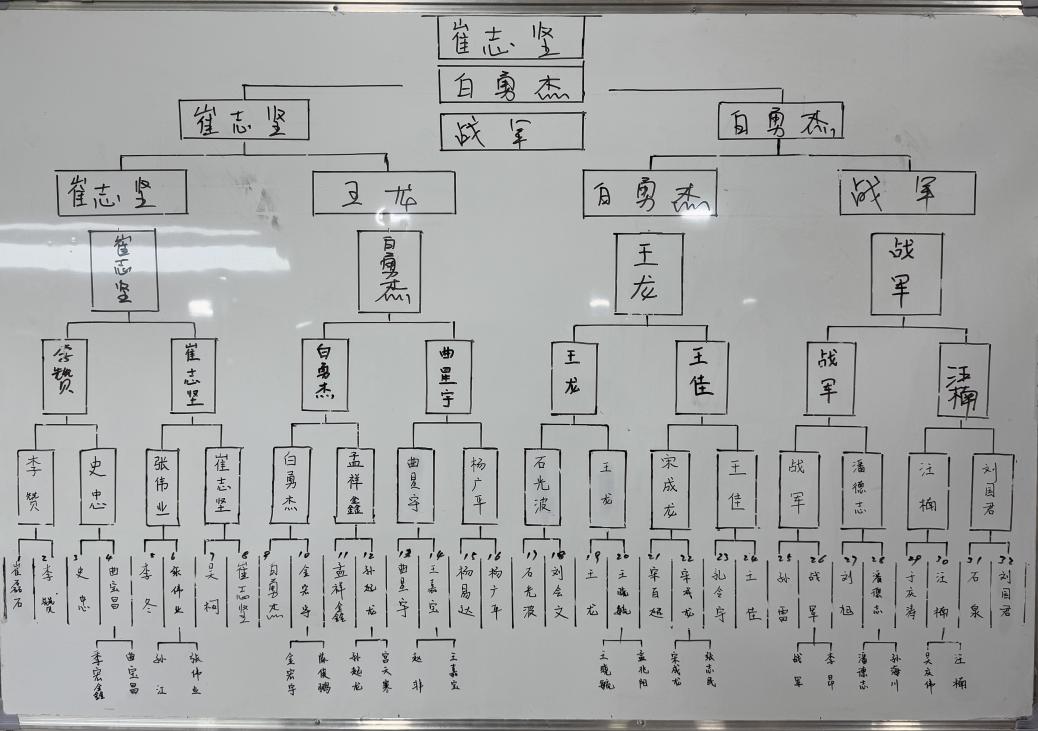 崔志坚
白勇杰
战军
崔志坚
白勇杰
崔志坚
王龙
白勇杰
战军
崔志坚
白勇杰
王龙
战军
李赞
崔志坚
白勇杰
曲星宇
王龙
王佳
战军
汪楠
李赞
史忠
张伟业
崔志坚
白勇杰
孟祥鑫
曲星宇
杨广平
石光波
王龙
宋成龙
王佳
战军
潘德志
汪楠
刘国君
1 崔磊石
2 李赞
3 史忠
4 曲宝昌
5 李冬
6 张伟业
7 吴柯
8 崔志坚
9 白勇杰
10 金宏宇
11 孟祥鑫
12 孙起龙
13 曲星宇
14 王嘉宝
15 杨易达
16 杨广平
17 石光波
18 刘会文
19 王龙
20 王晓毓
21 宋百超
22 宋成龙
23 孔令宇
24 王佳
25 孙雷
26 战军
27 刘旭
28 潘德志
29 于庆涛
30 汪楠
31 石泉
32 刘国君
李宏鑫
曲宝昌
孙江
张伟业
金宏宇
陈俊鹏
孙起龙
宫天寒
赵非
王嘉宝
王晓毓
孟兆阳
宋成龙
张志民
战军
李昂
潘德志
孙海川
吴庆伟
汪楠